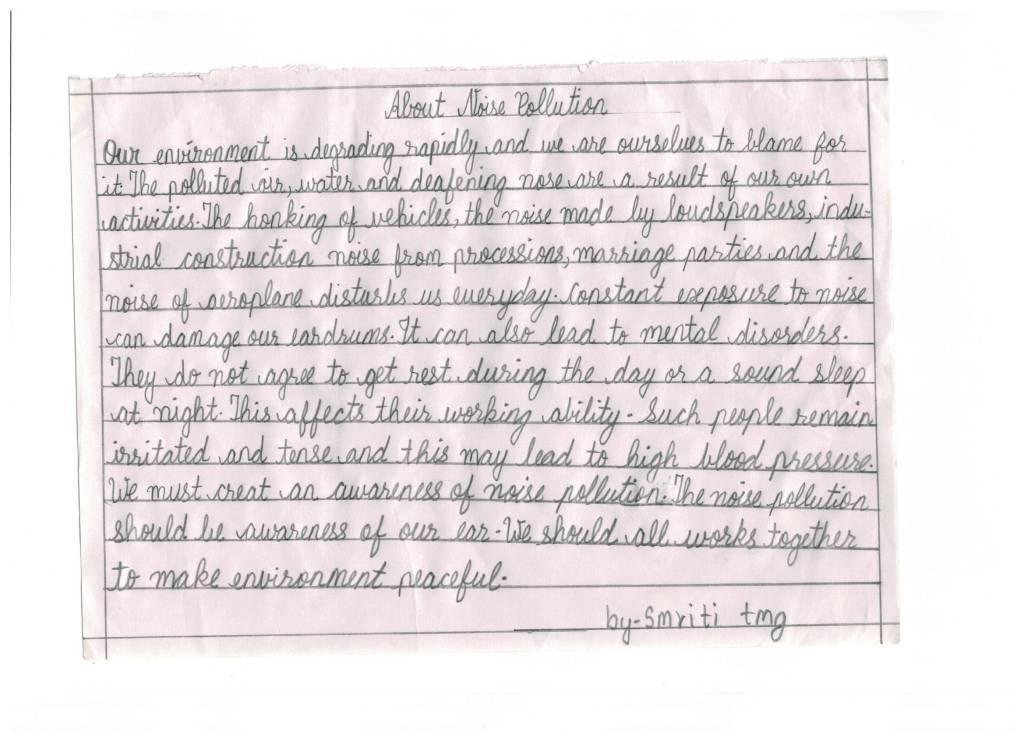 About Noise Pollution
Our environment is degrading rapidly and we are ourselves to blame for
it. The polluted air, water and deafening nose are a result of our own
activities. The honking of vehicles, the noise made by loudspeakers, indu-
strial construction noise from processions, marriage parties and the
noise of aeroplane disturbs us everyday. Constant exposure to noise
can damage our eardrums. It can also lead to mental disorders.
They do not agree to get rest during the day or a sound sleep
at night. This affects their working ability. Such people remain
irritated and tense and this may lead to high blood pressure.
We must creat an awareness of noise pollution. The noise pollution
should be awareness of our ear. We should all works together
to make environment peaceful.
by-Smriti tmg